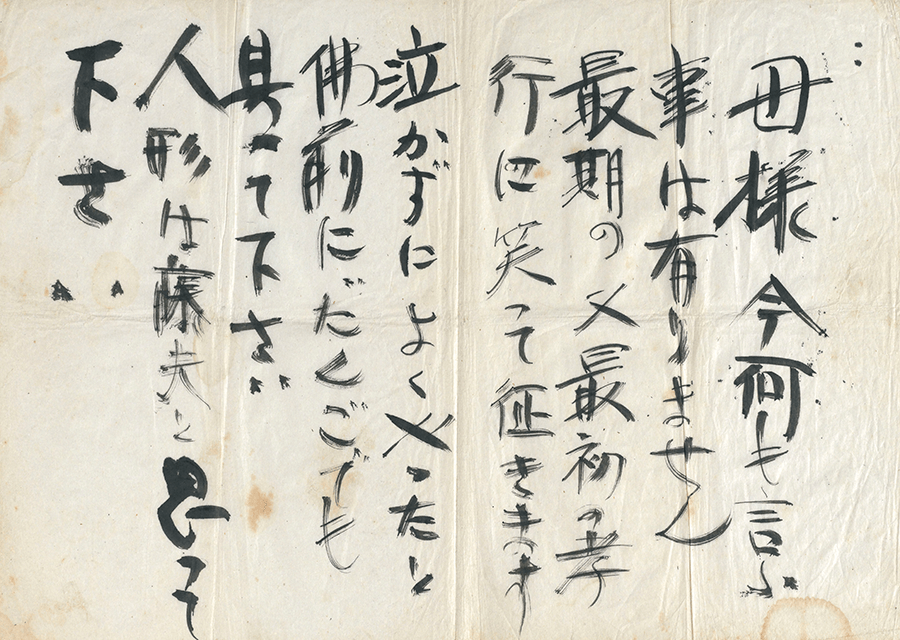 母様 今何も言ふ
事は有りません
最期の又最初の孝
行に笑って征きます
泣かずによくやったと
佛前にだんごでも
具へて下さい
人形は藤夫と思って
下さい